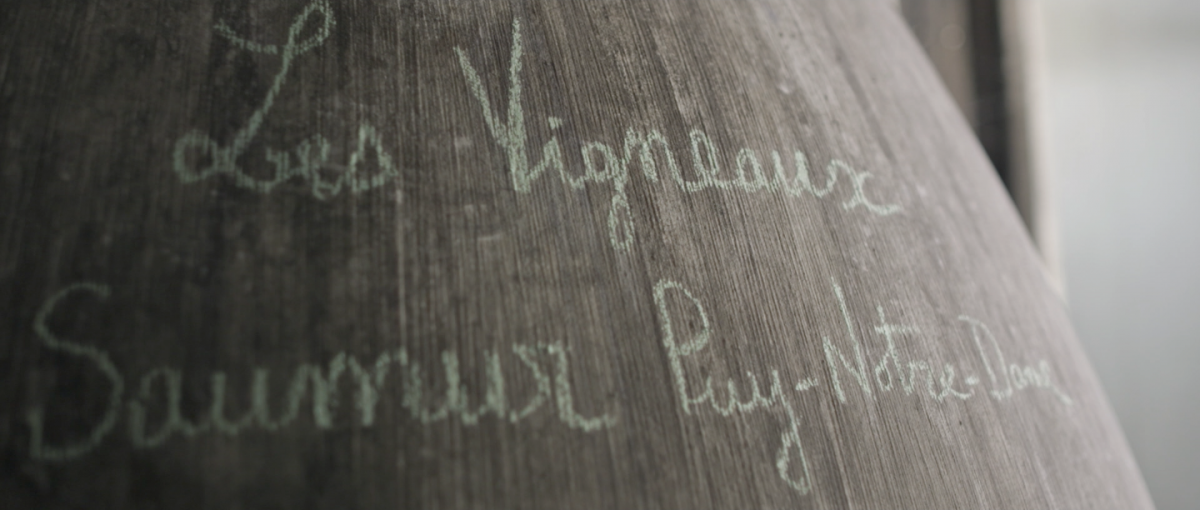 Les Vigneaux
Saumur Puy-Notre-Dame